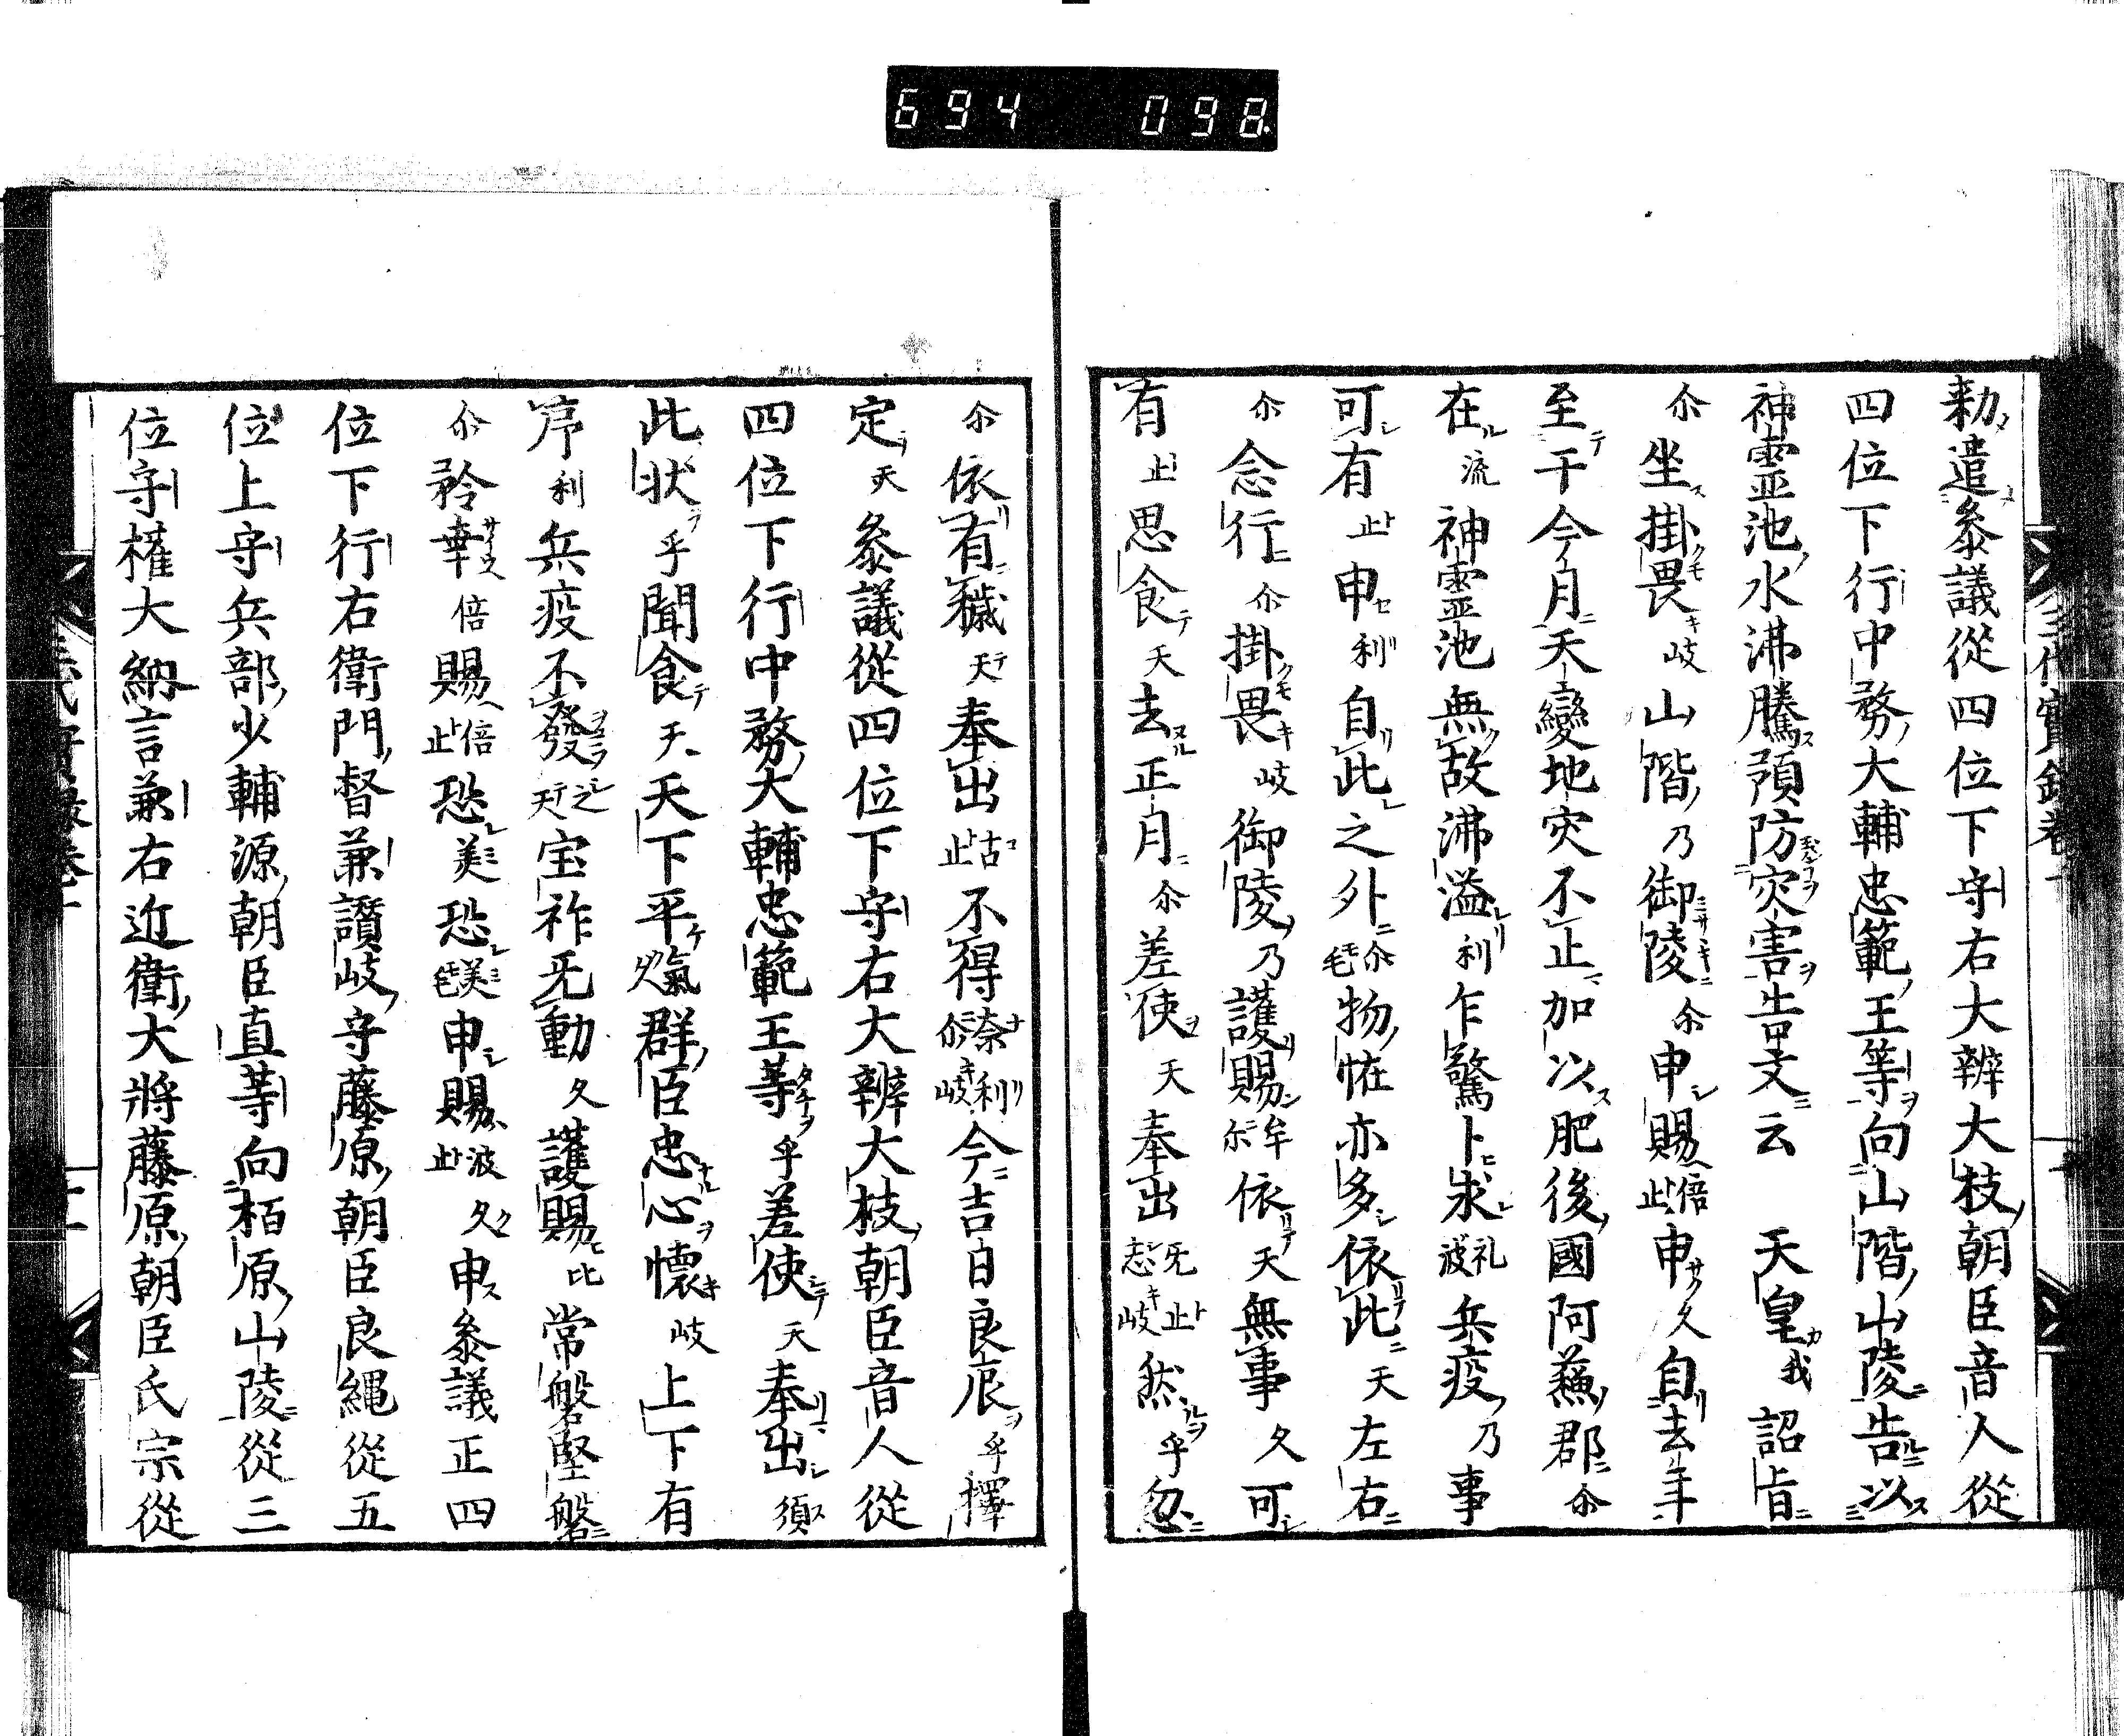 694 098
勅遣参議從四位下守右大辨大枝朝臣音人從
四位下行中務大輔忠範王等向山階山陵告以
神靈池水沸騰預防灾害告文云 天皇我詔旨
尒坐掛畏岐山階乃御陵尒申賜倍止申久自去年
至于今月天變地灾不止加以肥後國阿蘓郡尒
在流神靈池無故沸溢利乍驚卜求礼波兵疫乃事
可有止申利自此之外尒毛物恠亦多依此天左右
尒念行尒掛畏岐御陵乃護賜牟尒依天無事久可
有止思食天去正月尒差使天奉出牟止志岐然乎忽
尒依有穢天奉出古止不得奈利尒岐今吉日良辰乎擇
定天参議從四位下守右大辨大枝朝臣音人從
四位下行中務大輔忠範王等乎差使天奉出須
此状乎聞食天天下平氣久群臣忠心懐岐上下有
序利兵疫不發之天宝祚无動久護賜比常磐堅磐
尒矜幸倍賜倍止恐美恐美毛申賜波久止申参議正四
位下行右衛門督兼讃岐守藤原朝臣良縄從五
位上守兵部少輔源朝臣直等向栢原山陵從三
位守權大納言兼右近衛大將藤原朝臣氏宗從